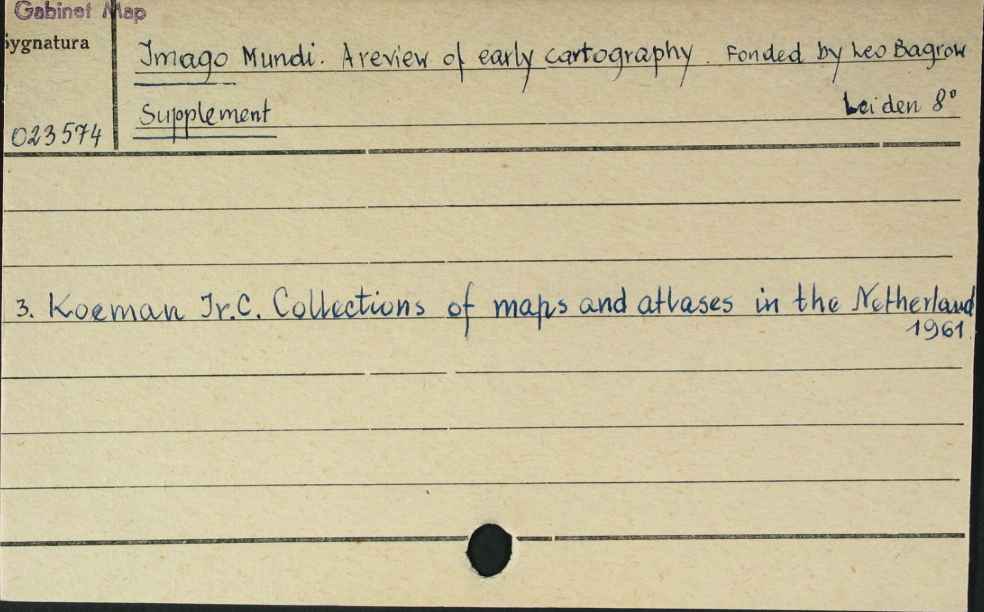 Gabinet Map
Sygnatura
Imago Mundi. A review of early cartography. Fonded by Leo Bagrow
Supplement Leiden 8°
023574
3. Koeman Jr.C. Collections of maps and atlases in the Netherland
1961